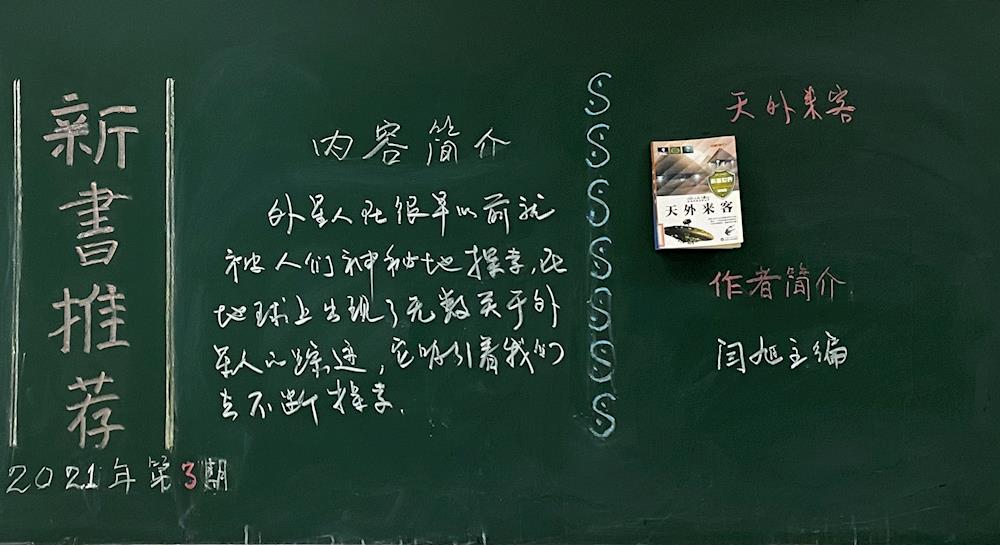 新書推荐
2021年第3期
内容简介
外星人在很早以前就
被人们神秘地探索,在
地球上出现了无数关于外
星人的踪迹,它吸引着我们
去不断探索.
S
S
S
S
S
S
S
S
天外来客
天外来客
作者简介
闫旭主编